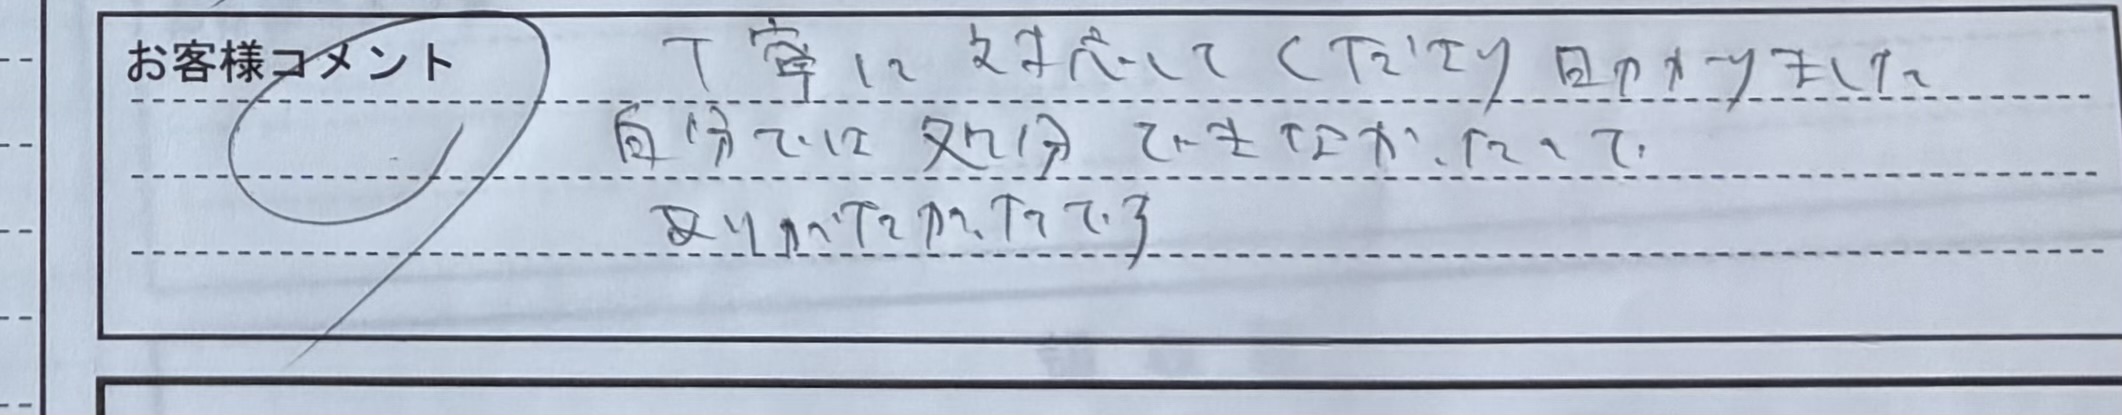 お客様コメント
丁寧に対応してくださり助かりました
自分では処分できなかったので
ありがたかったです